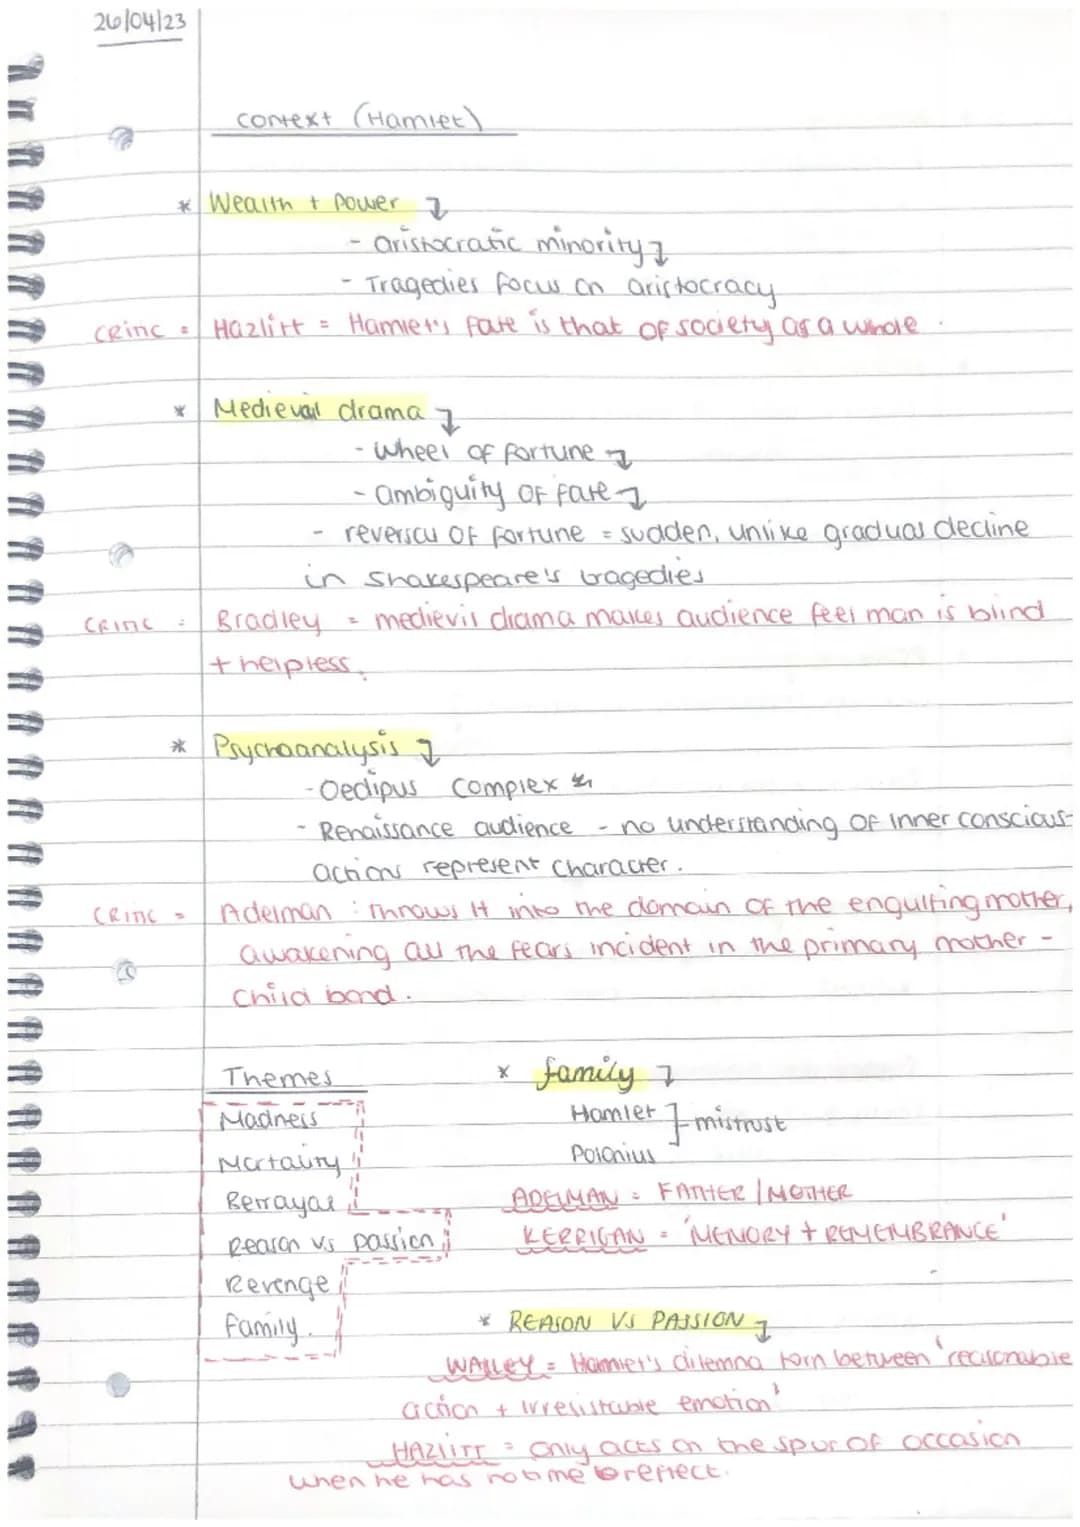 26/04/23
context (Hamlet)
* Wealth + power ↴
- aristocratic minority ↴
- Tragedies focus on aristocracy
CRITIC = Hazlitt = Hamlet's fate is that of society as a whole.
* Medieval drama ↴
- Wheel of fortune ↴
- ambiguity of fate ↴
- reversal of fortune = sudden, unlike gradual decline
in Shakespeare's tragedies
CRITIC = Bradley = medievil drama makes audience feel man is blind
+ helpless.
* Psychoanalysis ↴
- Oedipus Complex
- Renaissance audience - no understanding of inner conscious-
actions represent character.
CRITIC = Adelman : Throws H into the domain of the engulfing mother,
awakening all the fears incident in the primary mother -
child bond.
Themes
Madness
Mortality
Betrayal
Reason vs passion
Revenge
family.
* family ↴
Hamlet ] mistrust
Polonius
ADELMAN = FATHER / MOTHER
KERRIGAN = 'MEMORY + REMEMBRANCE'
* REASON VS PASSION ↴
= Hamlet's dilemna torn between 'reasonable
action + irresistable emotion'
HAZLITT = Only acts on the spur of occasion
when he has no time to reflect.